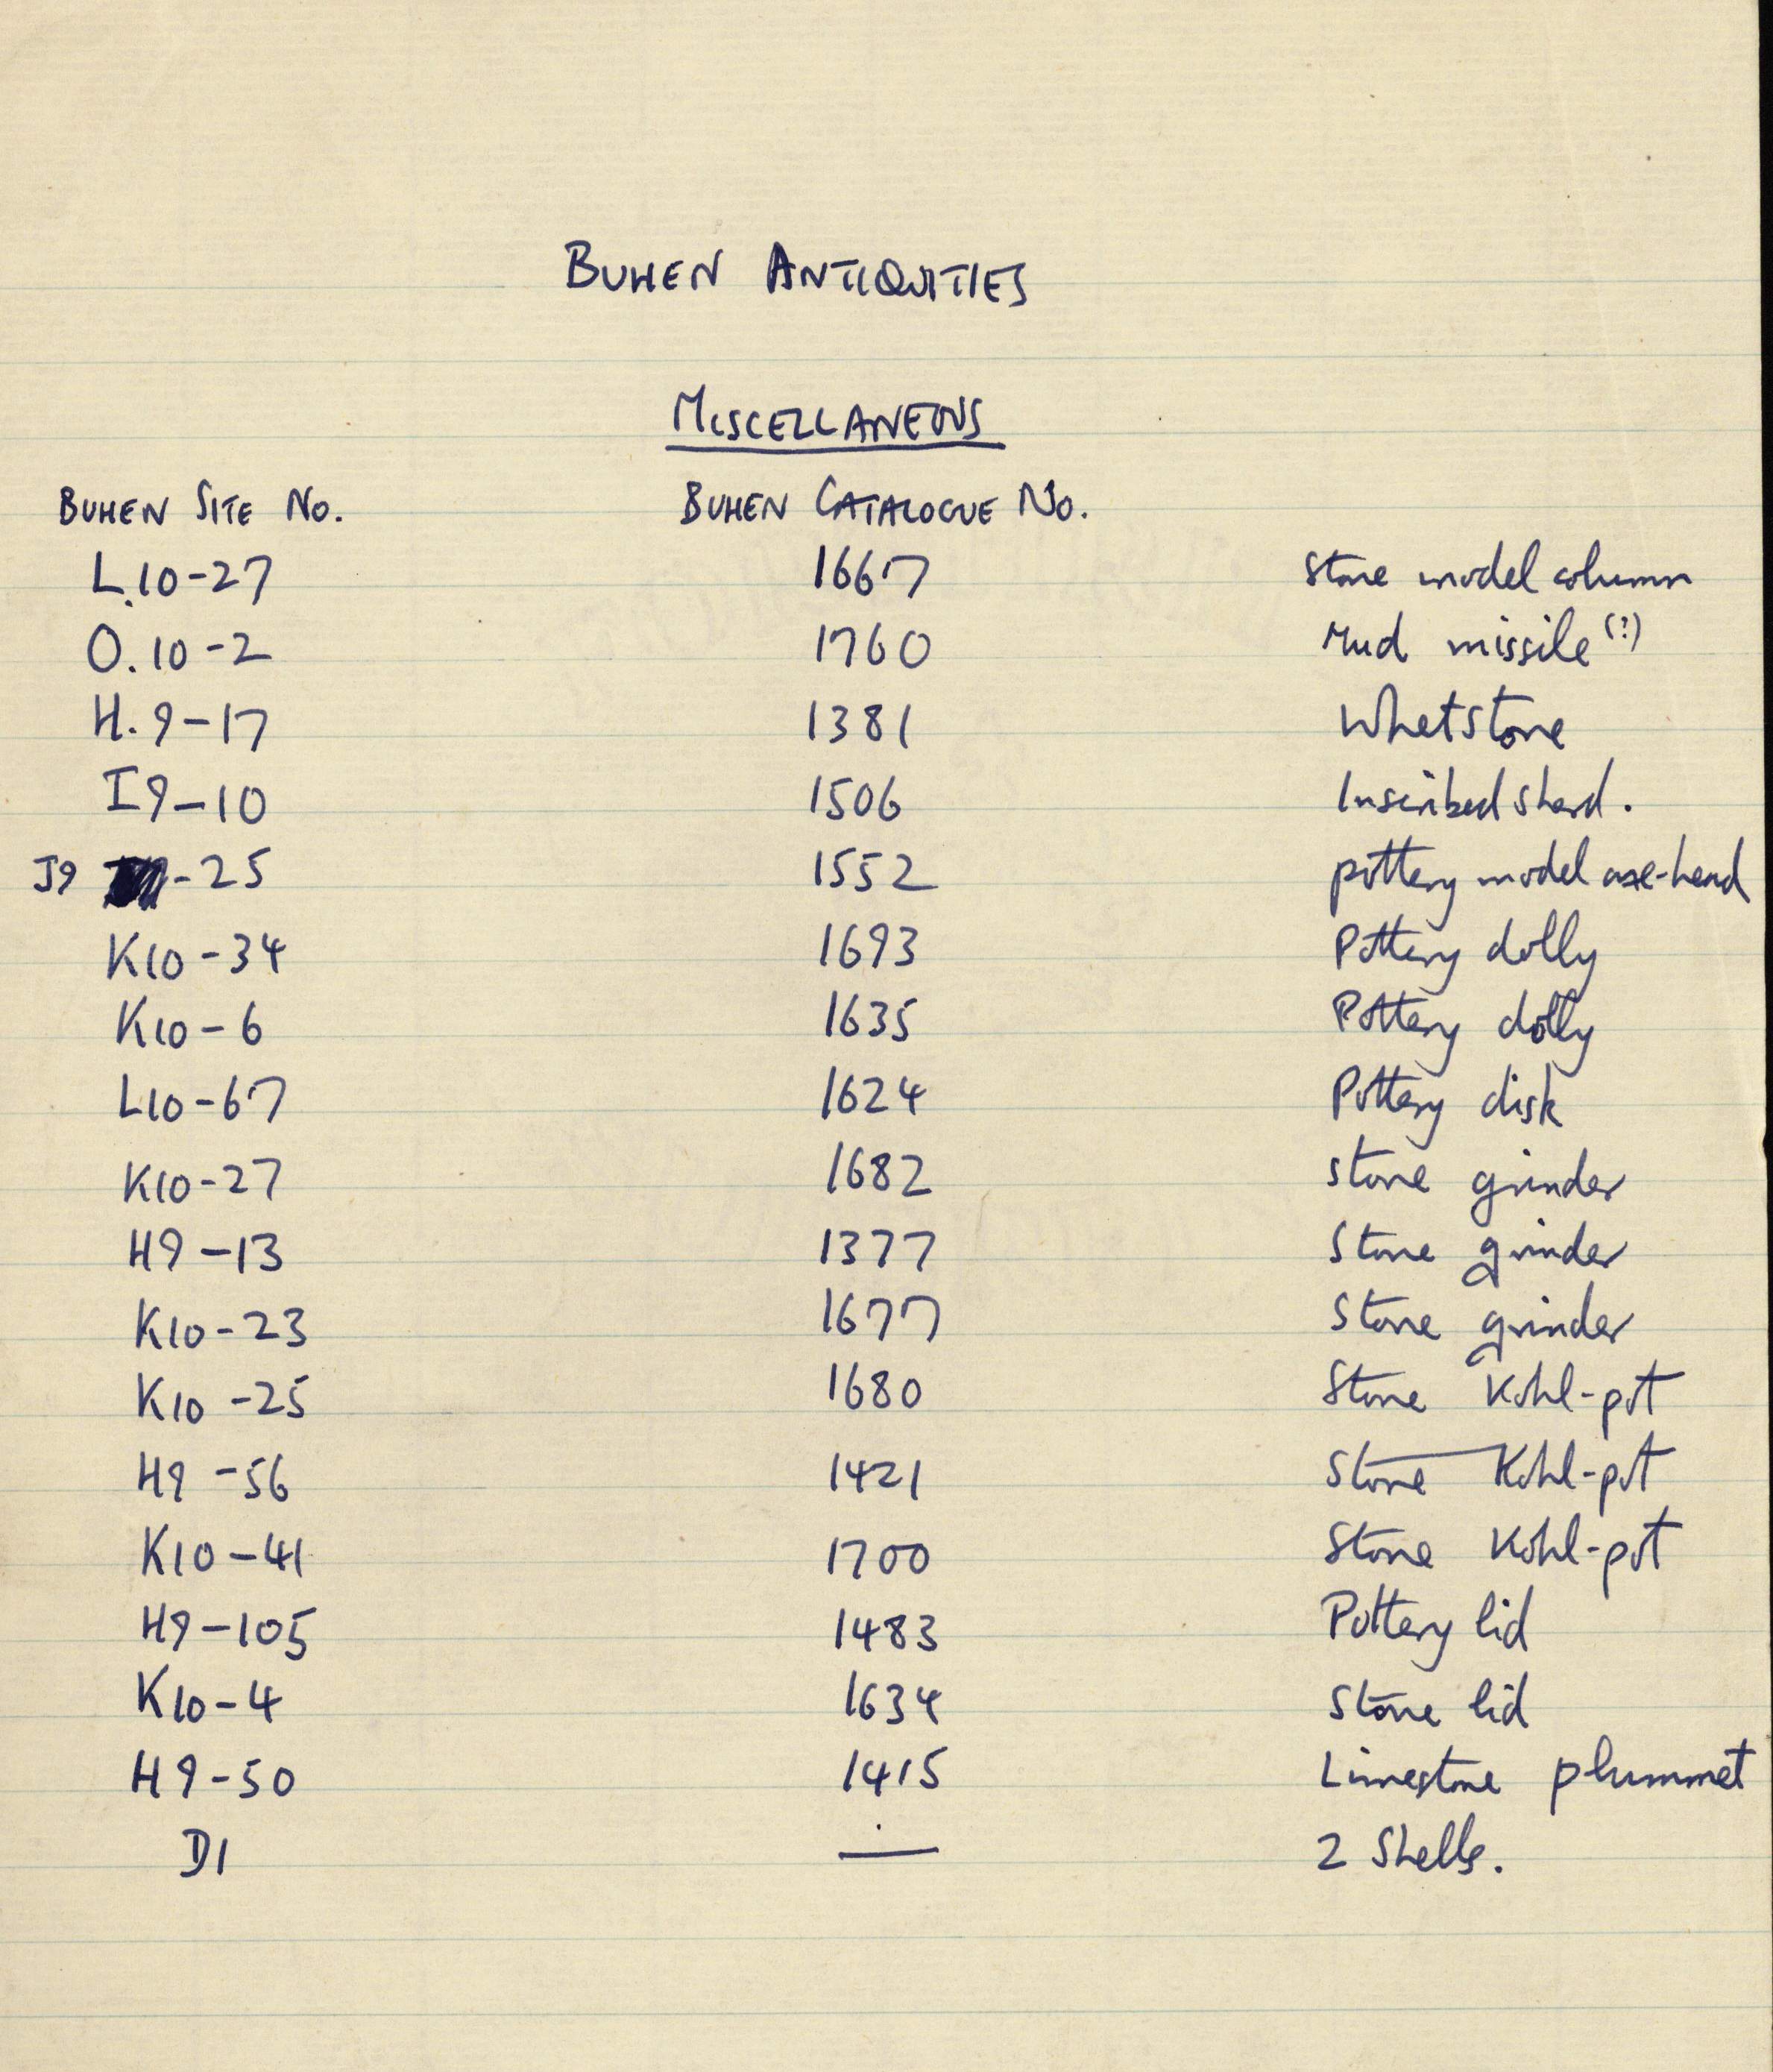 BUHEN ANTIQUITIES
MISCELLANEOUS
BUHEN SITE NO. BUHEN CATALOGUE NO.
L.10-27 1667 Stone model column
O.10-2 1760 Mud missile (?)
H.9-17 1381 Whetstone
I9-10 1506 Inscribed sherd.
J9 -25 1552 pottery model axe-head
K10-34 1693 Pottery dolly
K10-6 1635 Pottery dolly
L10-67 1624 Pottery disk
K10-27 1682 Stone grinder
H9-13 1377 Stone grinder
K10-23 1677 Stone grinder
K10-25 1680 Stone Kohl-pot
H9-56 1421 Stone Kohl-pot
K10-41 1700 Stone Kohl-pot
H9-105 1483 Pottery lid
K10-4 1634 Stone lid
H9-50 1415 Limestone plummet
D1 — 2 Shells.